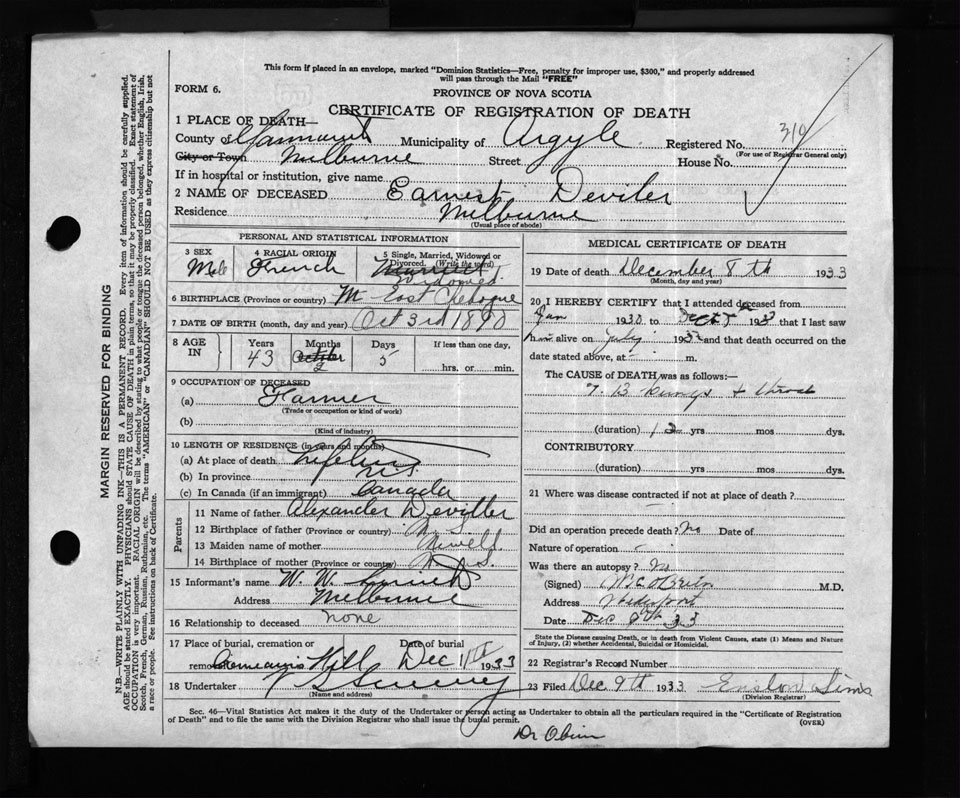 This form if placed in an envelope, marked "Dominion Statistics—Free, penalty for improper use, $300," and properly addressed
will pass through the Mail "FREE"
FORM 6.
PROVINCE OF NOVA SCOTIA
CERTIFICATE OF REGISTRATION OF DEATH
1 PLACE OF DEATH—
County of Yarmouth Municipality of Argyle Registered No. 310
(For use of Registrar General only)
City or Town Melburne Street House No.
If in hospital or institution, give name
2 NAME OF DECEASED Earnest Deviler
Residence Melburne
(Usual place of abode)
PERSONAL AND STATISTICAL INFORMATION
3 SEX Male
4 RACIAL ORIGIN French
5 Single, Married, Widowed or Divorced. (Write the word) Married Widowed
6 BIRTHPLACE (Province or country) East Chebogue
7 DATE OF BIRTH (month, day and year) Oct 3rd 1890
8 AGE IN Years 43 Months 2 Days 5 If less than one day, hrs. or min.
9 OCCUPATION OF DECEASED
(a) Farmer
(Trade or occupation or kind of work)
(b)
(Kind of industry)
10 LENGTH OF RESIDENCE (in years and months)
(a) At place of death
(b) In province
(c) In Canada (if an immigrant) Canada
Parents
11 Name of father Alexander Deviller
12 Birthplace of father (Province or country)
13 Maiden name of mother
14 Birthplace of mother (Province or country) N.S.
15 Informant's name W. W.
Address Melburne
16 Relationship to deceased none
17 Place of burial, cremation or removal Hill Date of burial Dec 11th 1933
18 Undertaker V S Sweeney
(Name and address)
MEDICAL CERTIFICATE OF DEATH
19 Date of death December 8th 1933
(Month, day and year)
20 I HEREBY CERTIFY that I attended deceased from
Jan 1930 to Dec 8 1933 that I last saw
him alive on July 1933 and that death occurred on the
date stated above, at m.
The CAUSE of DEATH was as follows:—
T B lungs + throat
(duration) yrs mos dys.
CONTRIBUTORY
(duration) yrs mos dys.
21 Where was disease contracted if not at place of death?
Did an operation precede death? No Date of
Nature of operation
Was there an autopsy? No
(Signed) M.D.
Address Wedgeport
Date Dec 9th 33
State the Disease causing Death, or in death from Violent Causes, state (1) Means and Nature
of Injury, (2) whether Accidental, Suicidal or Homicidal.
22 Registrar's Record Number
23 Filed Dec 9th 1933 Sims
(Division Registrar)
Sec. 46—Vital Statistics Act makes it the duty of the Undertaker or person acting as Undertaker to obtain all the particulars required in the "Certificate of Registration
of Death" and to file the same with the Division Registrar who shall issue the burial permit.
(OVER)
Dr Obrien
MARGIN RESERVED FOR BINDING
N.B.—WRITE PLAINLY WITH UNFADING INK—THIS IS A PERMANENT RECORD. Every item of information should be carefully supplied.
AGE should be stated EXACTLY. PHYSICIANS should STATE CAUSE OF DEATH in plain terms, so that it may be properly classified. Exact statement of
OCCUPATION is very important. RACIAL ORIGIN will be described by stating to what people or tongue the deceased person belonged, whether English, Irish,
Scotch, French, German, Russian, Ruthenian, etc. The terms "AMERICAN" or "CANADIAN" SHOULD NOT BE USED as they express citizenship but not
a race or people. See instructions on back of Certificate.